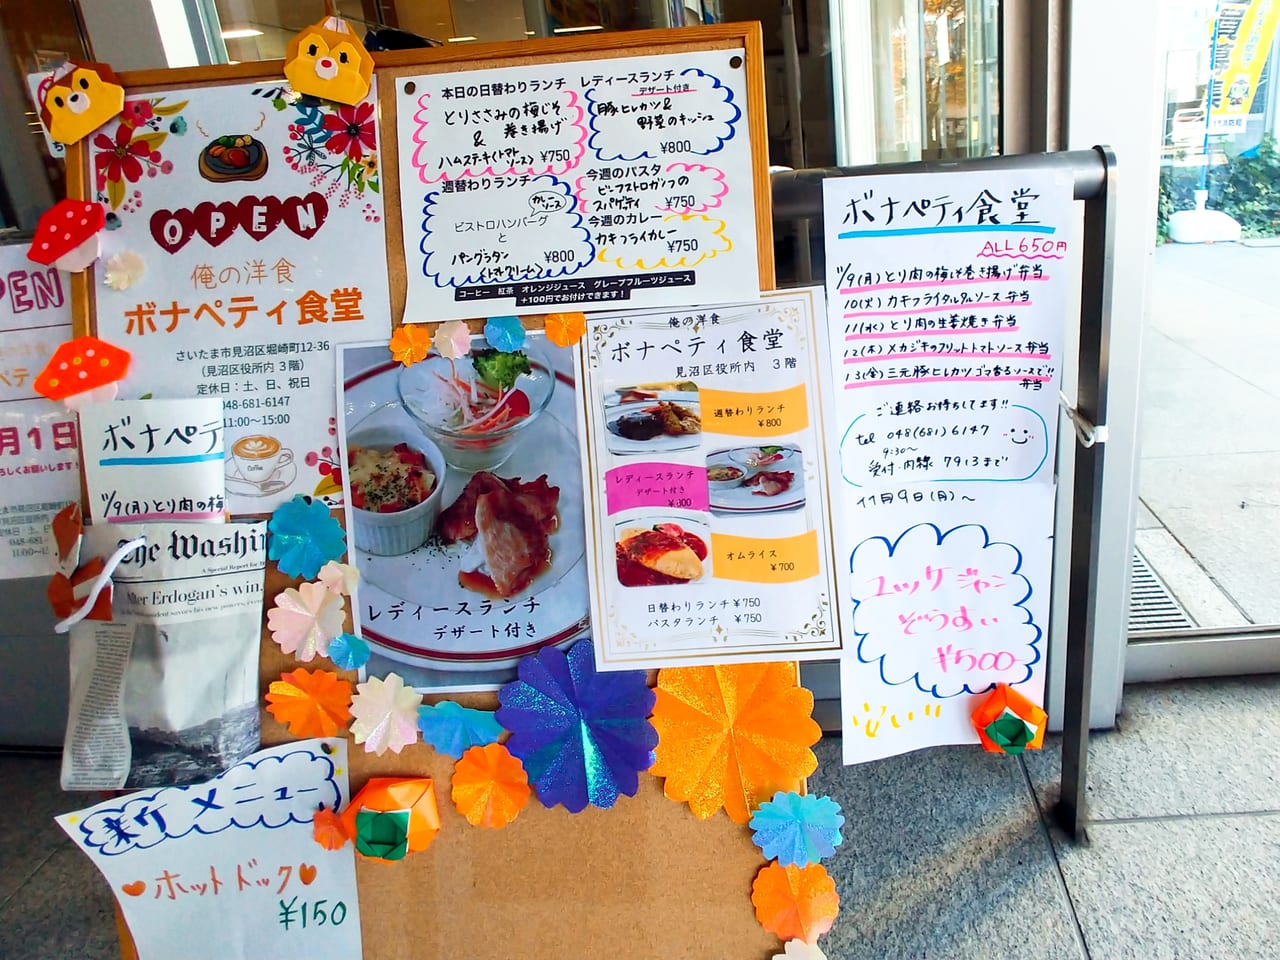 OPEN
俺の洋食
ボナペティ食堂
さいたま市見沼区堀崎町12-36
(見沼区役所内 3階)
定休日：土、日、祝日
048-681-6147
11:00〜15:00
Coffee
本日の日替わりランチ
とりささみの梅じそ
巻き揚げ
&
ハムステーキ(トマト
ソース)
¥750
レディースランチ
デザート付き
豚ヒレカツ&
野菜のキッシュ
¥800
週替わりランチ
カレー
ソース
ビストロハンバーグ
と
パングラタン
(トマトクリーム)
¥800
今週のパスタ
ビーフストロガノフの
スパゲティ
¥750
今週のカレー
カキフライカレー
¥750
コーヒー 紅茶 オレンジジュース グレープフルーツジュース
+100円でお付けできます！
レディースランチ
デザート付き
俺の洋食
ボナペティ食堂
見沼区役所内 3階
週替わりランチ
¥800
レディースランチ
デザート付き
¥800
オムライス
¥700
日替わりランチ¥750
パスタランチ ¥750
ボナペティ食堂
ALL650円
11/9(月)とり肉の梅じそ巻き揚げ弁当
10(火)カキフライタルタルソース弁当
11(水)とり肉の生姜焼き弁当
12(木)メカジキのフリットトマトソース弁当
13(金)三元豚ヒレカツゴマ香るソースで!!
弁当
ご連絡お待ちしてます!!
tel 048(681)6147
9:30〜
受付・内線 7913まで
11月9日(月)〜
ユッケジャン
ぞうすい
¥500-
ボナペテ
11/9(月)とり肉の梅
The Washin
A Special Report for
After Erdogan's win,
新メニュー
ホットドック
¥150
PEN
月1日
048-681-
11:00〜15